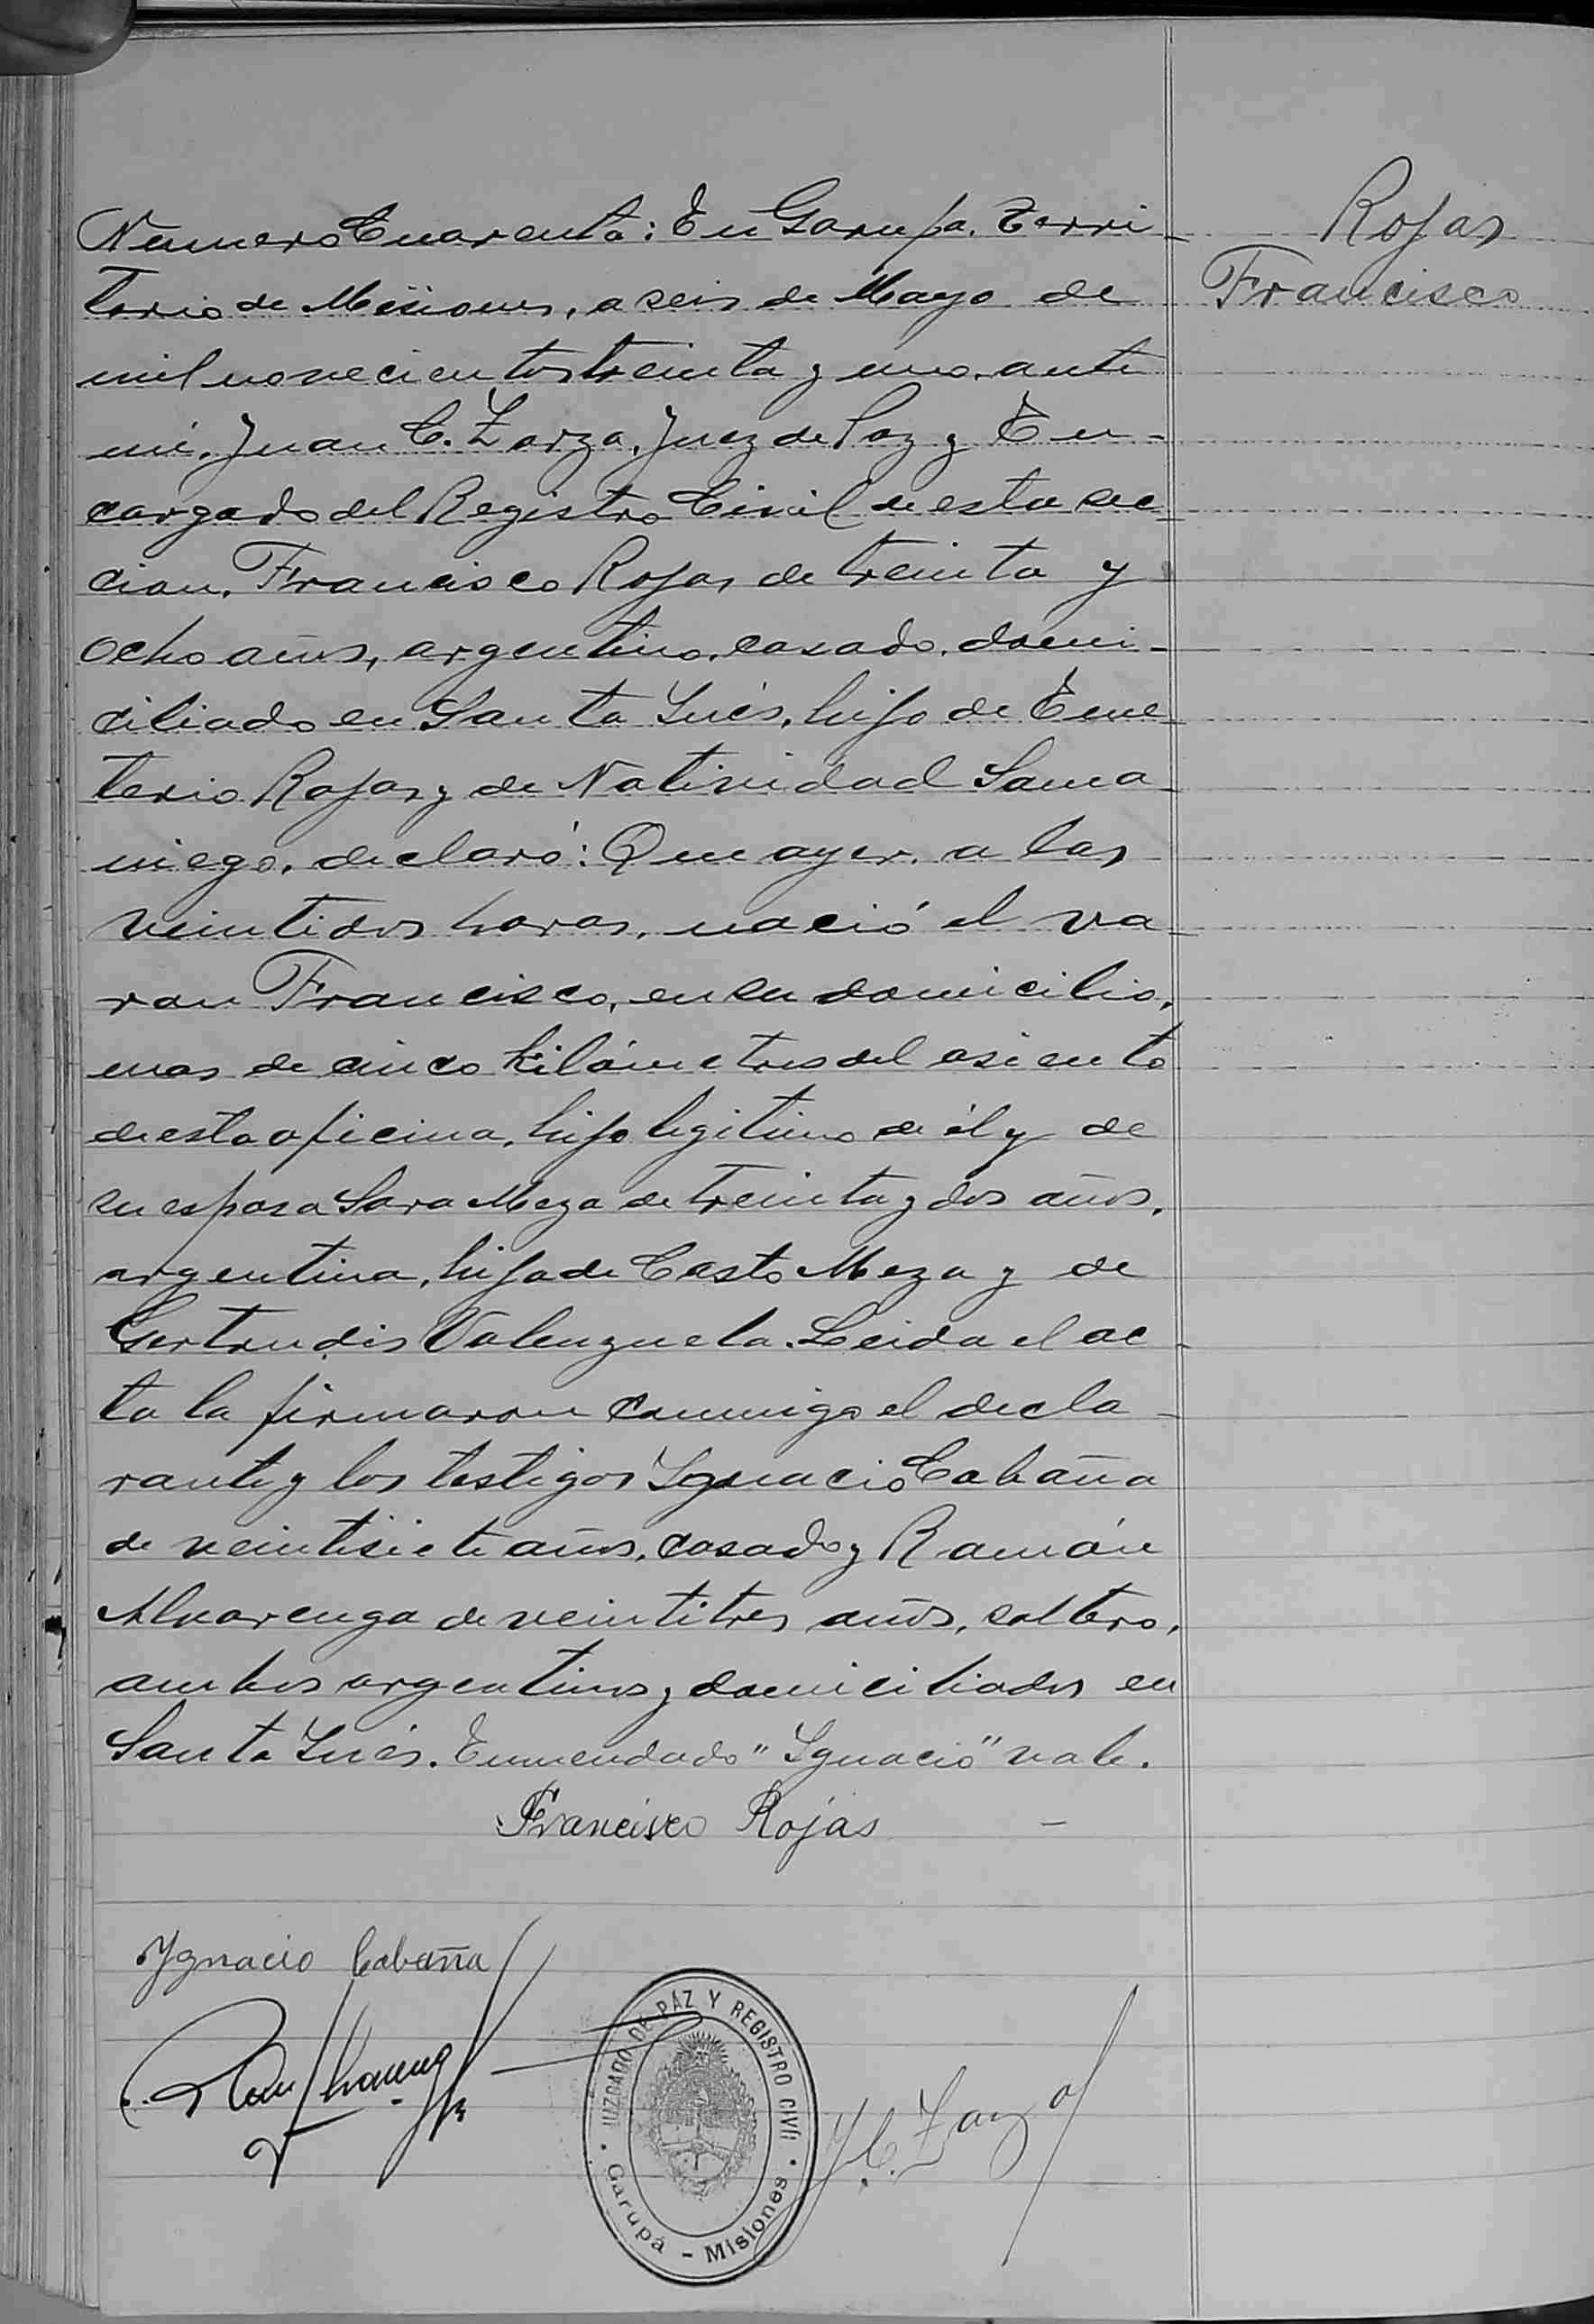 Rojas
Francisco
Numero Cuarenta: En Garupa. Terri-
torio de Misiones, a seis de Mayo de
mil novecientos treinta y uno, ante
mí, Juan C. Zarza, Juez de Paz y En-
cargado del Registro Civil de esta sec-
cion, Francisco Rojas de treinta y
ocho años, argentino, casado, domi-
ciliado en Santa Inés, hijo de Eme-
terio Rojas y de Natividad Sama-
niego, declaró: Que ayer, a las
veintidos horas, nació el va-
ron Francisco, en su domicilio,
mas de cinco kilómetros del asiento
de esta oficina, hijo legitimo de él y de
su esposa Sara Meza de treinta y dos años,
argentina, hija de Casto Meza y de
Gertrudis Valenzuela. Leida el ac-
ta la firmaron conmigo el decla-
rante y los testigos Ignacio Cabaña
de veintisiete años, casado y Ramón
Alvarenga de veintitres años, soltero,
ambos argentinos y domiciliados en
Santa Inés. Enmendado "Ignacio" vale.
Francisco Rojas —
Ygnacio Cabaña
JUZGADO DE PAZ Y REGISTRO CIVIL
Garupá - Misiones
J. C. Zarza